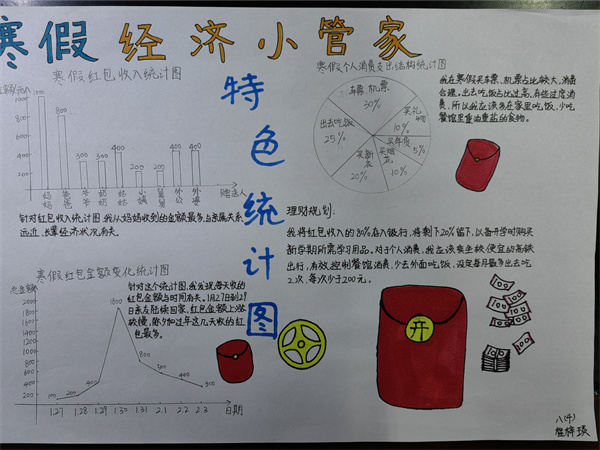 寒假经济小管家
特色统计图
寒假红包收入统计图
1000
800
600
400
200
0
100
800
300
300
400
200
200
400
400
妈妈
爸爸
爷爷
姑姑
姑姑
小姨
舅舅
外公
外婆
赠送人
针对红包收入统计图,我从妈妈收到的金额最多,与亲属关系
远近,长辈经济状况有关。
寒假个人消费支出结构统计图
车票、机票
30%
出去吃饭
25%
买礼
10%
买年货
5%
买烟花
10%
买新衣
20%
我在寒假买车票、机票占比较大,消费
合理。出去吃饭占比过高,有些过度消
费。所以我应该多在家里吃饭,少吃
餐馆里重油重盐的食物。
理财规划:
我将红包收入的80%存入银行,将剩下20%留下,以备开学时购买
新学期所需学习用品。对于个人消费,我应该乘坐较便宜的高铁
出行,有效控制餐馆消费,少去外面吃饭,设定每月最多出去吃
2次,每次少于200元。
寒假红包金额变化统计图
总金额
2000
1800
1600
1400
1200
1000
800
600
400
200
0
100
200
400
1800
800
500
400
300
1.27
1.28
1.29
1.30
1.31
2.1
2.2
2.3
日期
针对这个统计图,我发现每天收的
红包金额与时间有关。1月27日到29
日亲友陆续回家,红包金额上涨
较慢,除夕加过年这几天收的红
包最多。
开
八(4)